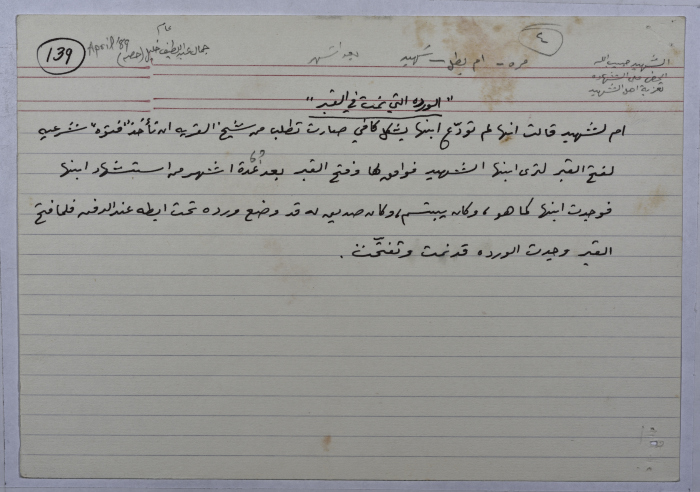 139
April 89
عام
جمال عبد اللطيف خليل (حصه)
بعد اشهر
مره - ام بطل - شهيد
٤
الشهيد حبيب الله
الحض على الشهاده
تعزية اهل الشهيد
"الورده التي نمت في القبر"
ام لشهيد قالت انها لم تودّع ابنها بشكل كافي صارت تطلب من شيخ القريه ان تأخذ "فتوة" شرعيه
لفتح القبر لترى ابنها الشهيد فوافق لها وفتح القبر بعد عدة اشهر من استشهاد ابنها
فوجدت ابنها كما هو، وكان يبتسم، وكان صديق له قد وضع ورده تحت ابطه عند الدفن فلما فتح
القبر وجدت الورده قد نمت وتفتحت.